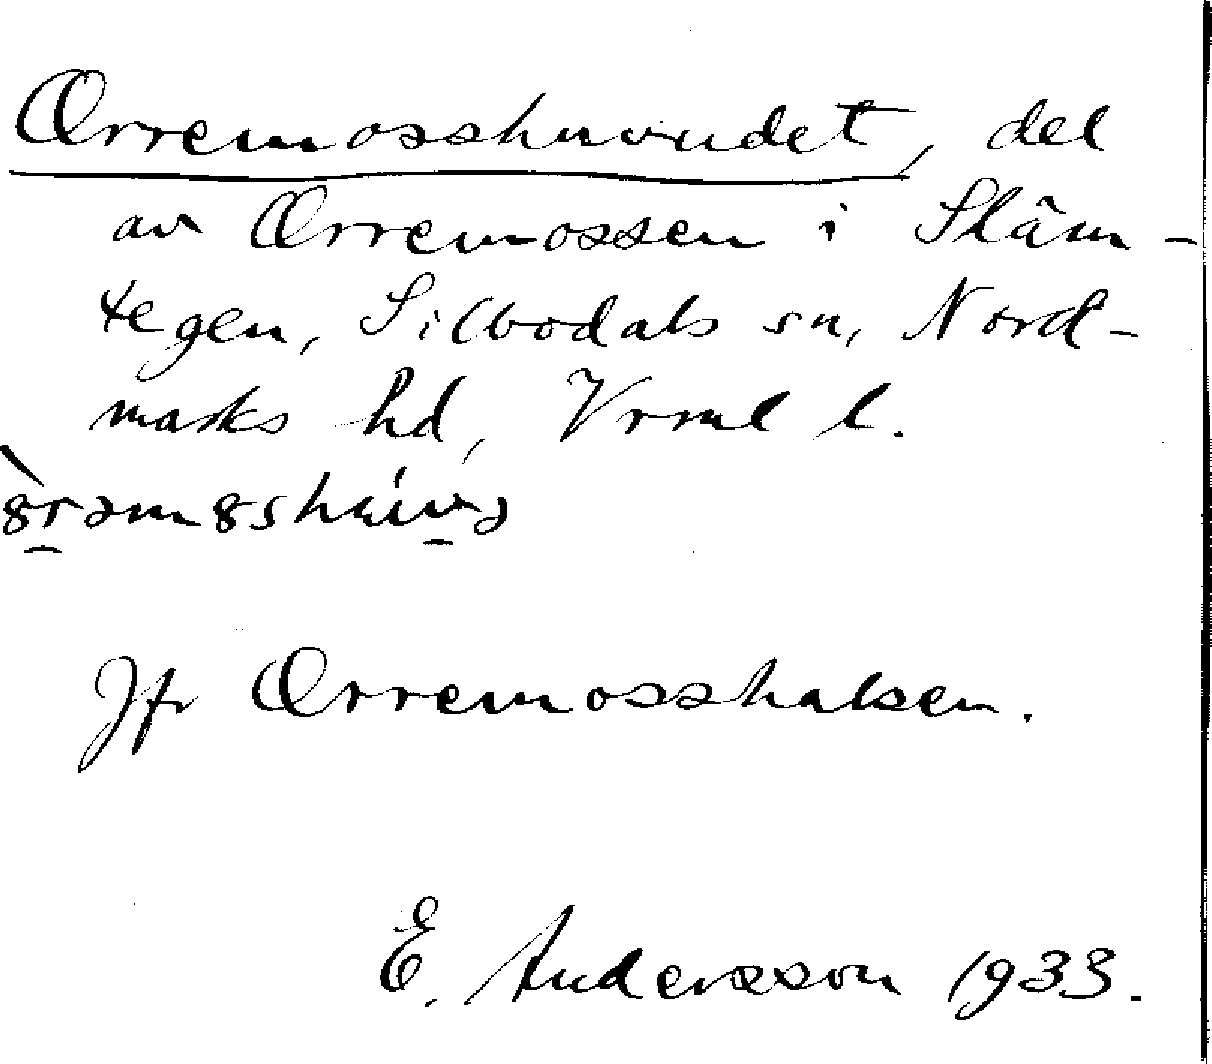 Orremosshuvudet, del
av Orremossen i Släm-
tegen, Silbodals sn, Nord-
marks hd, Vrml l.
Jfr Orremosshalsen.
E. Andersson 1933.